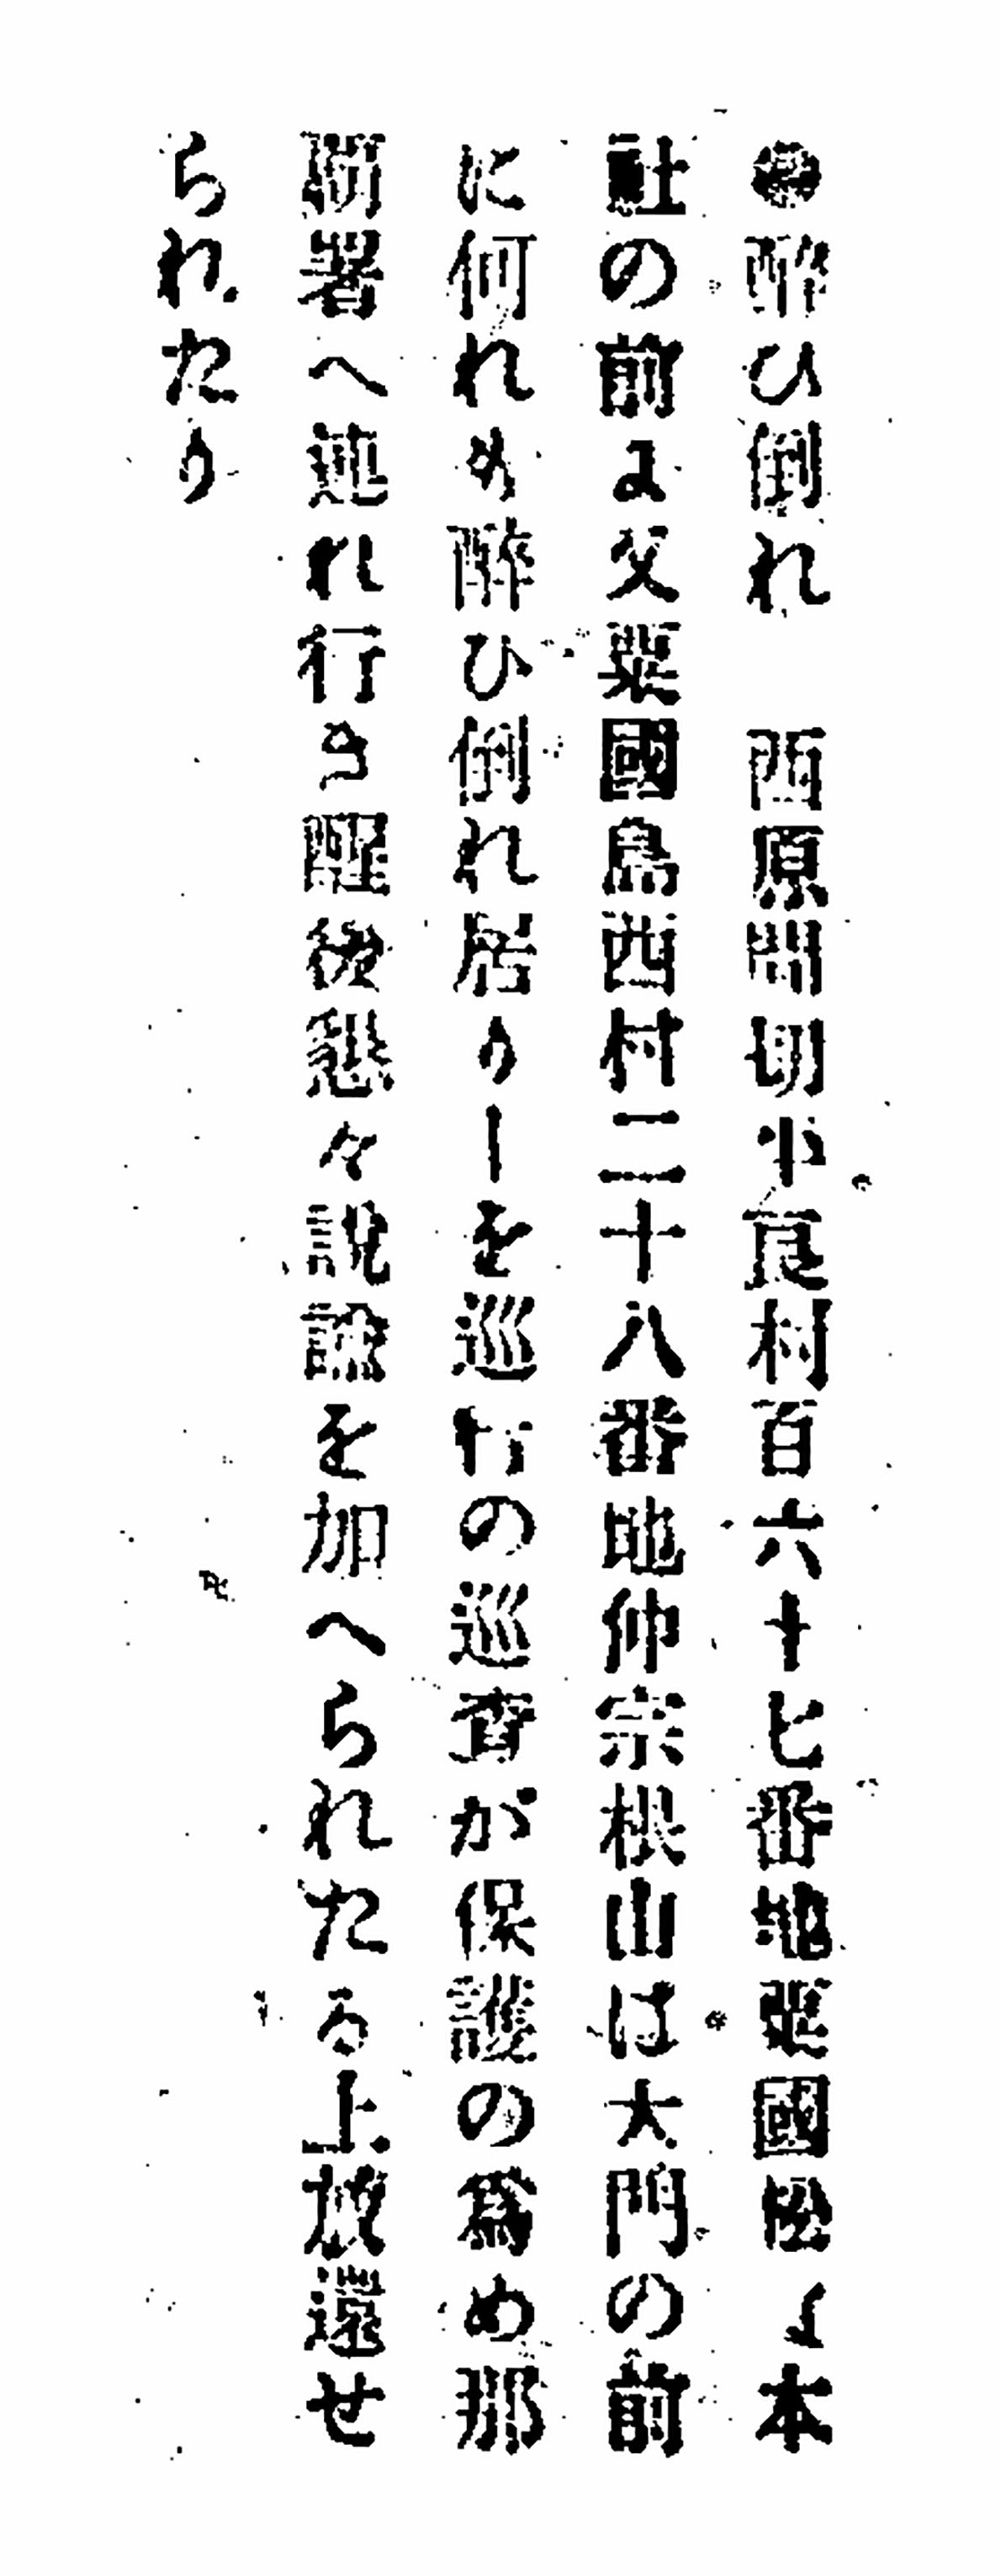 ◉酔ひ倒れ　西原間切小那村百六十七番地粟國松は本
社の前に父粟國島西村二十八番地仲宗根山は大門の前
に何れも酔ひ倒れ居りしを巡行の巡査が保護の爲め那
覇署へ連れ行き醒後懇々説諭を加へられたる上放還せ
られたり